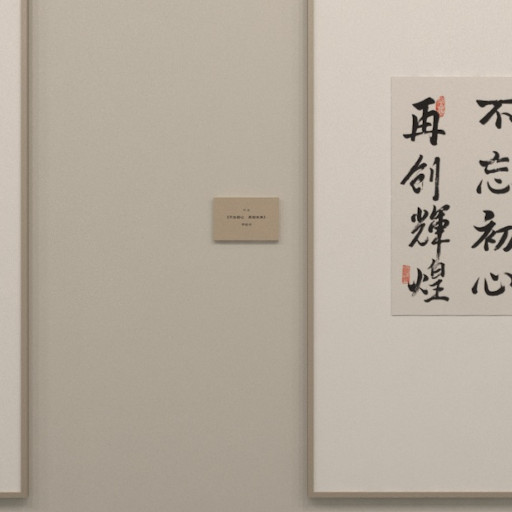 不忘初心
再创輝煌